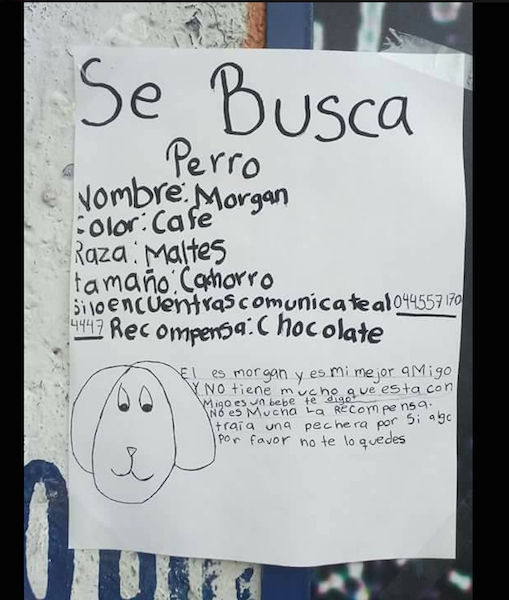 Se Busca
Perro
Nombre: Morgan
Color: Cafe
Raza: Maltes
tamaño: Cachorro
Si lo encuentras comunicate al 044557170
4447 Recompensa: Chocolate
El es morgan y es mi mejor aMigo
Y NO tiene mucho que esta con
Migo es un bebe te digo
NO es Mucha La Recompensa.
traía una pechera por si algo
Por favor no te lo quedes